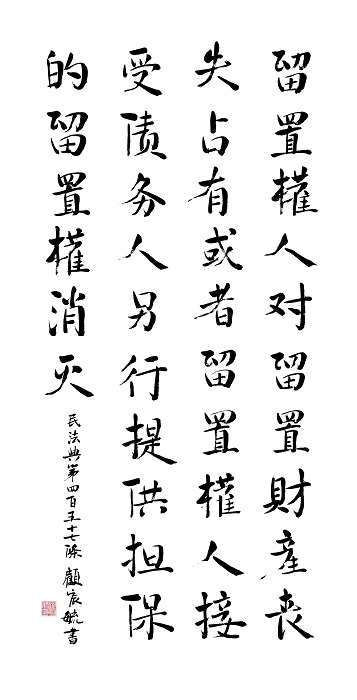 留置權人对留置財產丧
失占有或者留置權人接
受债务人另行提供担保
的留置權消灭
民法典第四百五十七條 顧宸毓書